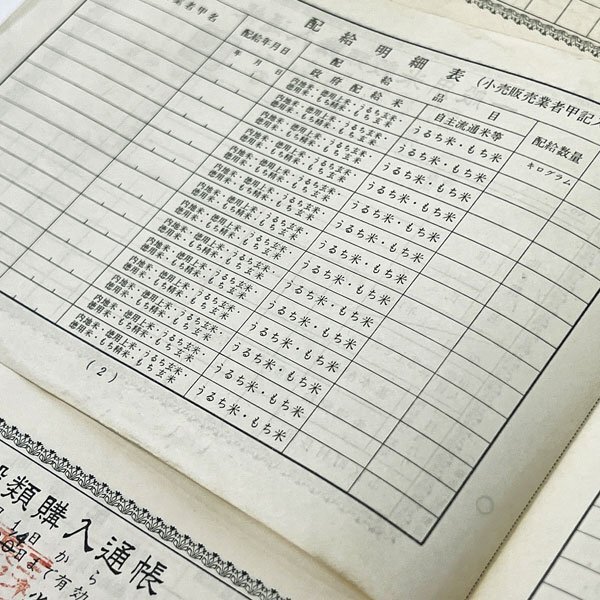 配給明細表(小売販売業者甲記入
業者甲名
配給年月日
配給品目
配給数量
年月日
政府配給米
自主流通米等
キログラム
内地米・徳用上米・うるち玄米・
徳用米・もち精米・もち玄米
うるち米・もち米
内地米・徳用上米・うるち玄米・
徳用米・もち精米・もち玄米
うるち米・もち米
内地米・徳用上米・うるち玄米・
徳用米・もち精米・もち玄米
うるち米・もち米
内地米・徳用上米・うるち玄米・
徳用米・もち精米・もち玄米
うるち米・もち米
内地米・徳用上米・うるち玄米・
徳用米・もち精米・もち玄米
うるち米・もち米
内地米・徳用上米・うるち玄米・
徳用米・もち精米・もち玄米
うるち米・もち米
内地米・徳用上米・うるち玄米・
徳用米・もち精米・もち玄米
うるち米・もち米
内地米・徳用上米・うるち玄米・
徳用米・もち精米・もち玄米
うるち米・もち米
内地米・徳用上米・うるち玄米・
徳用米・もち精米・もち玄米
うるち米・もち米
内地米・徳用上米・うるち玄米・
徳用米・もち精米・もち玄米
うるち米・もち米
内地米・徳用上米・うるち玄米・
徳用米・もち精米・もち玄米
うるち米・もち米
内地米・徳用上米・うるち玄米・
徳用米・もち精米・もち玄米
うるち米・もち米
(2)
類購入通帳
月1日から
日まで有効